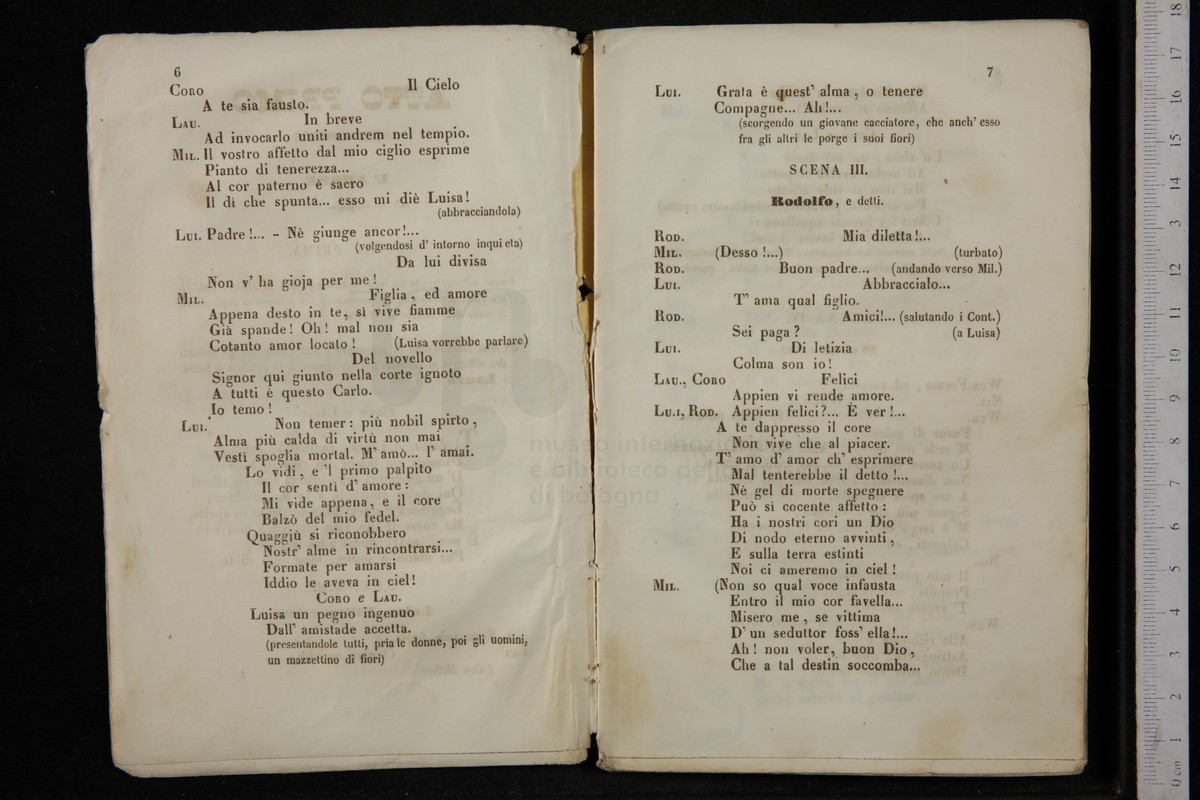 6
Coro Il Cielo
A te sia fausto.
Lau. In breve
Ad invocarlo uniti andrem nel tempio.
Mil. Il vostro affetto dal mio ciglio esprime
Pianto di tenerezza...
Al cor paterno è sacro
Il dì che spunta... esso mi diè Luisa!
(abbracciandola)
Lui. Padre!... – Nè giunge ancor!...
(volgendosi d' intorno inquieta)
Da lui divisa
Non v' ha gioja per me!
Mil. Figlia, ed amore
Appena desto in te, sì vive fiamme
Già spande! Oh! mal non sia
Cotanto amor locato! (Luisa vorrebbe parlare)
Del novello
Signor qui giunto nella corte ignoto
A tutti è questo Carlo.
Io temo!
Lui. Non temer: più nobil spirto,
Alma più calda di virtù non mai
Vestì spoglia mortal. M' amò... l' amai.
Lo vidi, e 'l primo palpito
Il cor sentì d' amore:
Mi vide appena, e il core
Balzò del mio fedel.
Quaggiù si riconobbero
Nostr' alme in rincontrarsi...
Formate per amarsi
Iddio le aveva in ciel!
Coro e Lau.
Luisa un pegno ingenuo
Dall' amistade accetta.
(presentandole tutti, pria le donne, poi gli uomini,
un mazzettino di fiori)
7
Lui. Grata è quest' alma, o tenere
Compagne... Ah!...
(scorgendo un giovane cacciatore, che anch' esso
fra gli altri le porge i suoi fiori)
SCENA III.
Rodolfo, e detti.
Rod. Mia diletta!...
Mil. (Desso!...) (turbato)
Rod. Buon padre... (andando verso Mil.)
Lui. Abbraccialo...
T' ama qual figlio.
Rod. Amici!... (salutando i Cont.)
Sei paga? (a Luisa)
Lui. Di letizia
Colma son io!
Lau., Coro Felici
Appien vi rende amore.
Lu.i, Rod. Appien felici?... È ver!...
A te dappresso il core
Non vive che al piacer.
T' amo d' amor ch' esprimere
Mal tenterebbe il detto!...
Nè gel di morte spegnere
Può sì cocente affetto:
Ha i nostri cori un Dio
Di nodo eterno avvinti,
E sulla terra estinti
Noi ci ameremo in ciel!
Mil. (Non so qual voce infausta
Entro il mio cor favella...
Misero me, se vittima
D' un seduttor foss' ella!...
Ah! non voler, buon Dio,
Che a tal destin soccomba...